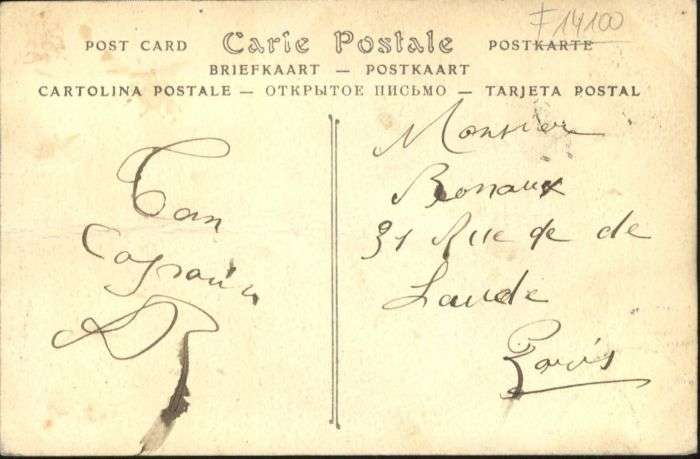 F 14100
POST CARD Carte Postale POSTKARTE
BRIEFKAART — POSTKAART
CARTOLINA POSTALE — ОТКРЫТОЕ ПИСЬМО — TARJETA POSTAL
Ton
Monsieur
31 Rue de de
Paris